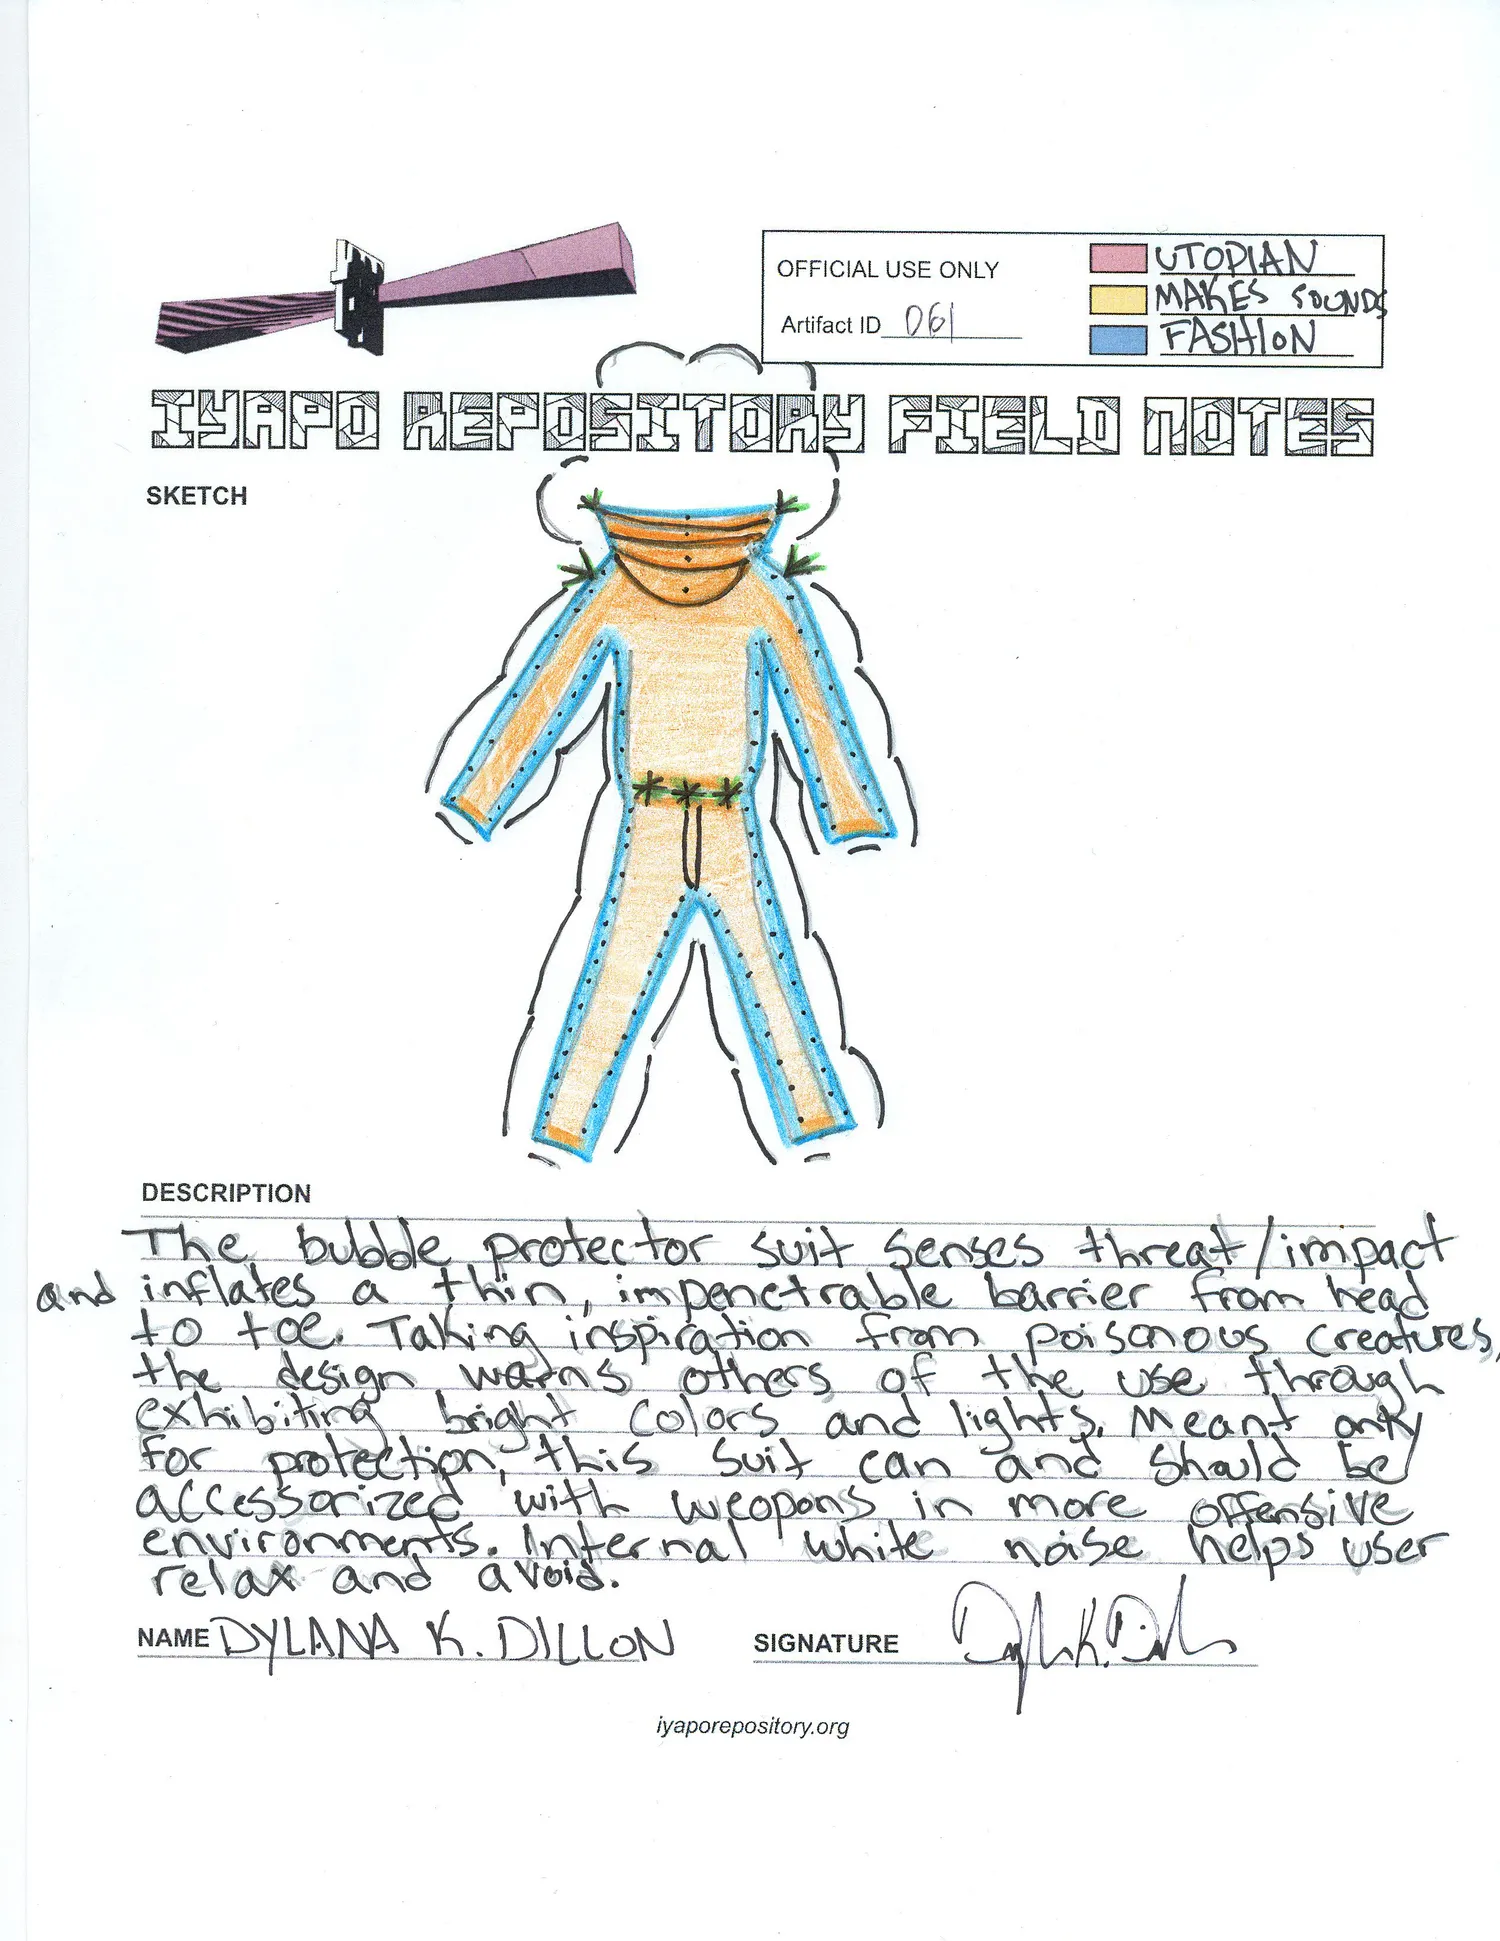 OFFICIAL USE ONLY
Artifact ID 061
UTOPIAN
MAKES SOUNDS
FASHION
IYAPO REPOSITORY FIELD NOTES
SKETCH
DESCRIPTION
The bubble protector suit senses threat/impact
and inflates a thin, impenetrable barrier from head
to toe. Taking inspiration from poisonous creatures,
the design warns others of the use through
exhibiting bright colors and lights. Meant only
for protection, this suit can and should be
accessorized with weopons in more offensive
environments. Internal white noise helps user
relax and avoid.
NAME DYLANA K. DILLON
SIGNATURE Dylana K. Dillon
iyaporepository.org